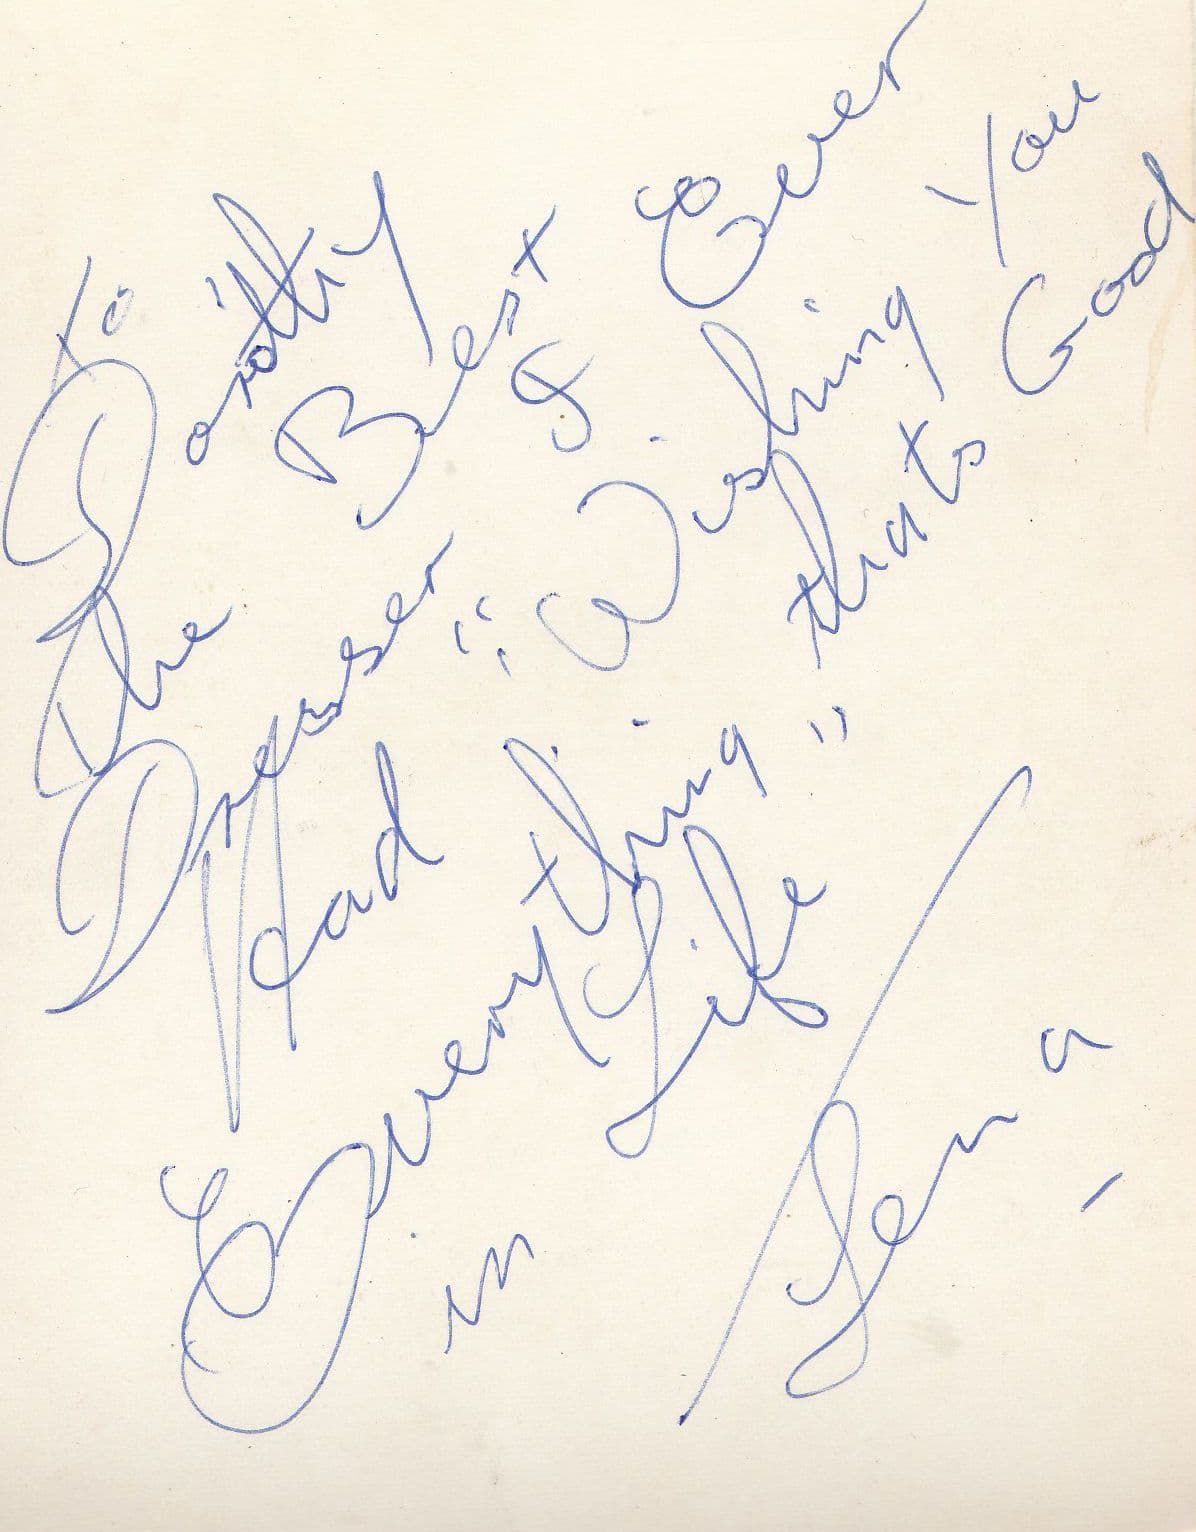 To Dorothy
The Best
Dresser I Ever
Had "Wishing You
Everything thats Good
in Life"
Lena